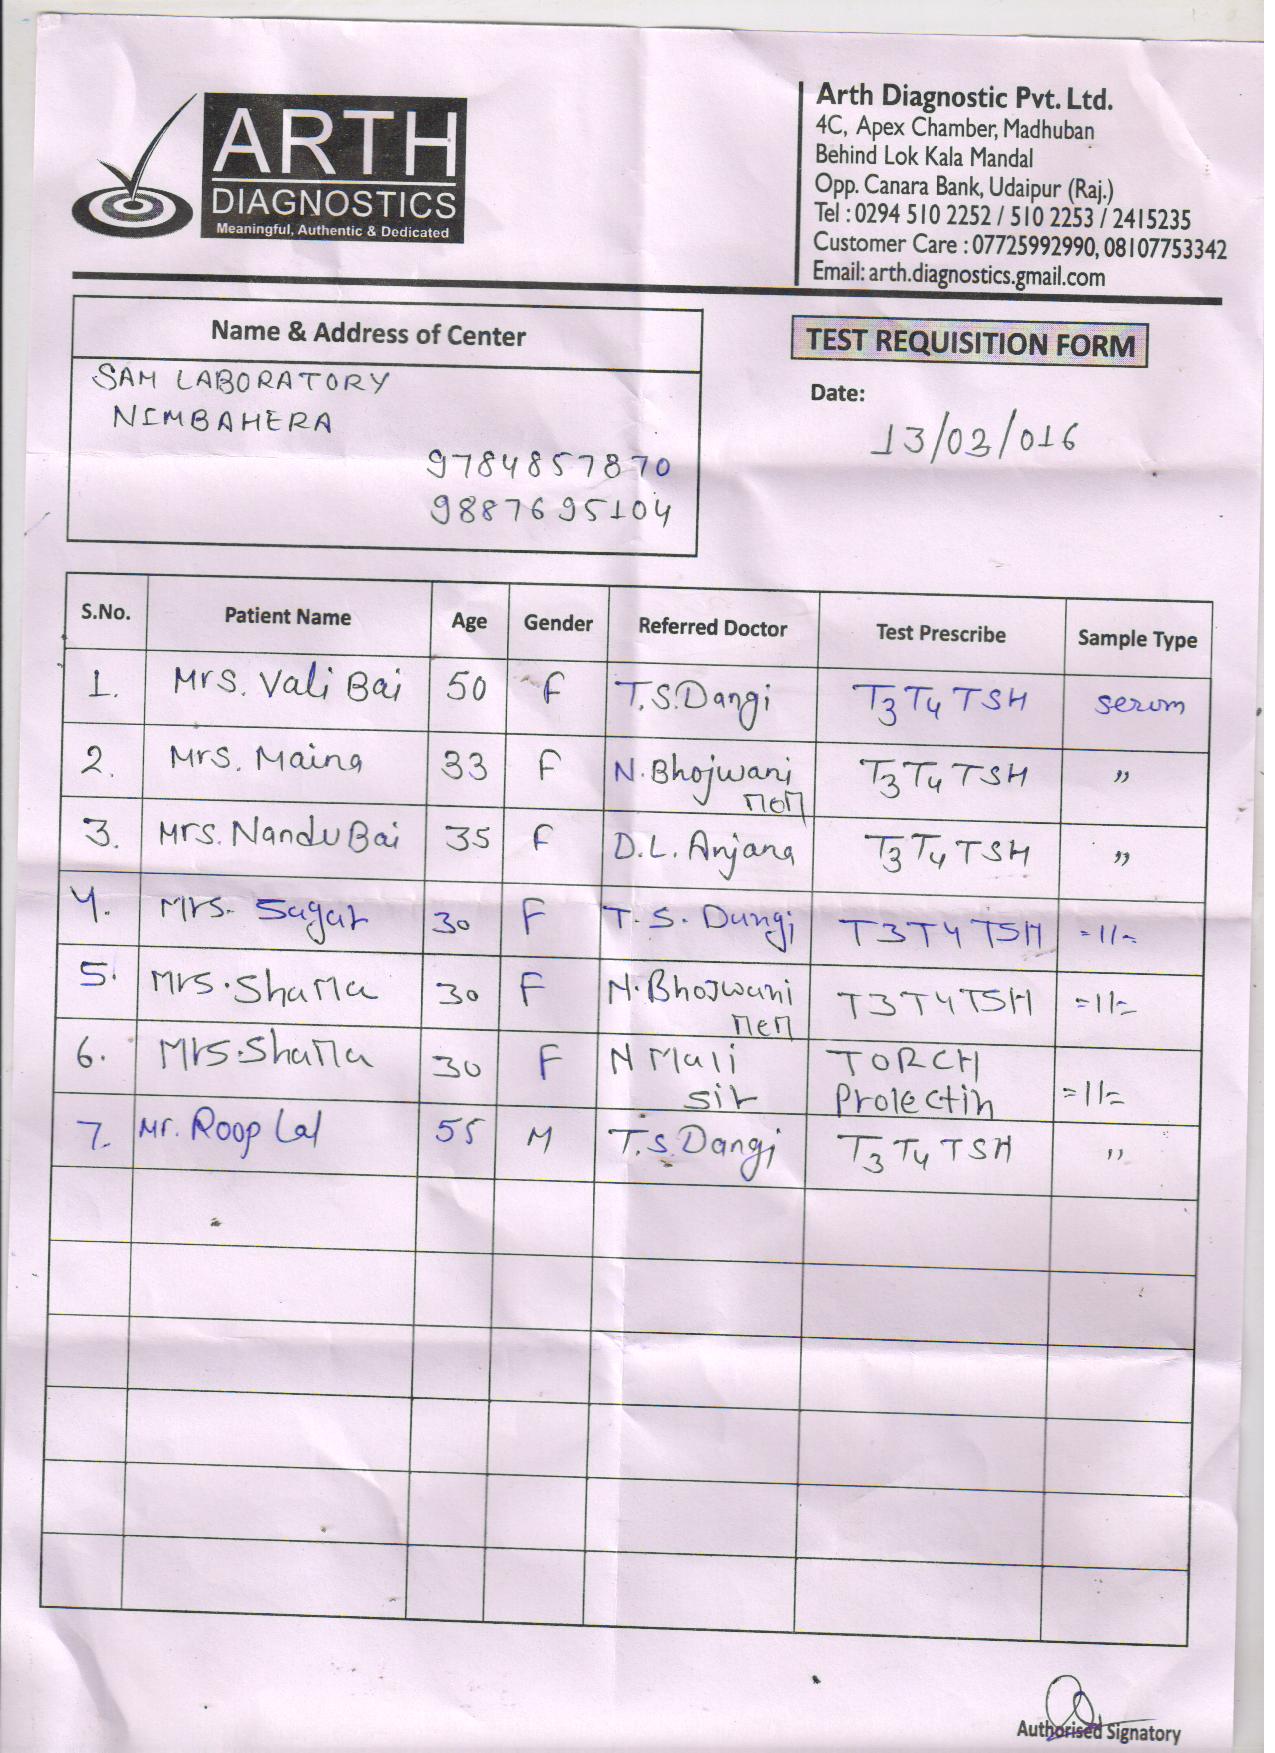 ARTH
DIAGNOSTICS
Meaningful, Authentic & Dedicated
Arth Diagnostic Pvt. Ltd.
4C, Apex Chamber, Madhuban
Behind Lok Kala Mandal
Opp. Canara Bank, Udaipur (Raj.)
Tel : 0294 510 2252 / 510 2253 / 2415235
Customer Care : 07725992990, 08107753342
Email: arth.diagnostics.gmail.com
Name & Address of Center
SAM LABORATORY
NIMBAHERA
9784857870
9887695104
TEST REQUISITION FORM
Date:
13/03/016
S.No. Patient Name Age Gender Referred Doctor Test Prescribe Sample Type
1. Mrs. Vali Bai 50 F T.S.Dangi T3 T4 TSH serum
2. Mrs. Maina 33 F N. Bhojwani T3 T4 TSH "
mem
3. Mrs. Nandu Bai 35 F D.L. Anjana T3 T4 TSH "
4. Mrs. Sagar 30 F T. S. Dangi T3 T4 TSH =11=
5. Mrs. Sharma 30 F N. Bhojwani T3 T4 TSH =11=
mem
6. Mrs. Sharma 30 F N Mali TORCH =11=
sir Prolectin
7. Mr. Roop Lal 55 M T.S. Dangi T3 T4 TSH "
Authorised Signatory